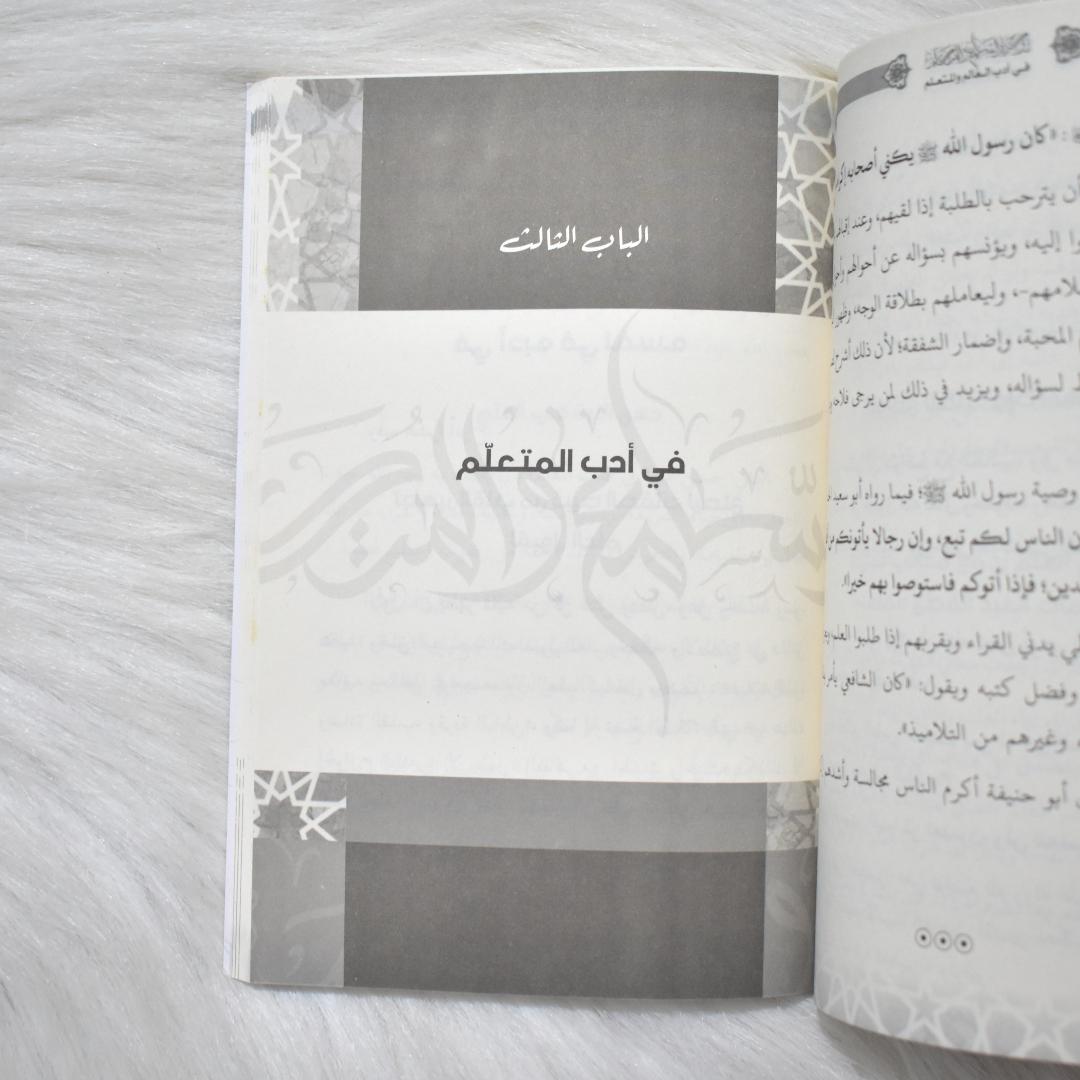 في أدب العالم والمتعلم
: «كان رسول الله ﷺ يكني أصحابه إكر
أن يترحب بالطلبة إذا لقيهم، وعند إقبا
وا إليه، ويؤنسهم بسؤاله عن أحوالهم
لامهم-، وليعاملهم بطلاقة الوجه، وظهو
المحبة، وإضمار الشفقة؛ لأن ذلك أشرح
لسؤاله، ويزيد في ذلك لمن يرجى فلاحه
وصية رسول الله ﷺ؛ فيما رواه أبو سعيد
ن الناس لكم تبع، وإن رجالا يأتونكم من
لدين؛ فإذا أتوكم فاستوصوا بهم خيرا».
يدني القراء ويقربهم إذا طلبوا العلم،
وفضل كتبه ويقول: «كان الشافعي يأمر
وغيرهم من التلاميذ».
أبو حنيفة أكرم الناس مجالسة وأشدهم
الباب الثالث
في أدب المتعلّم